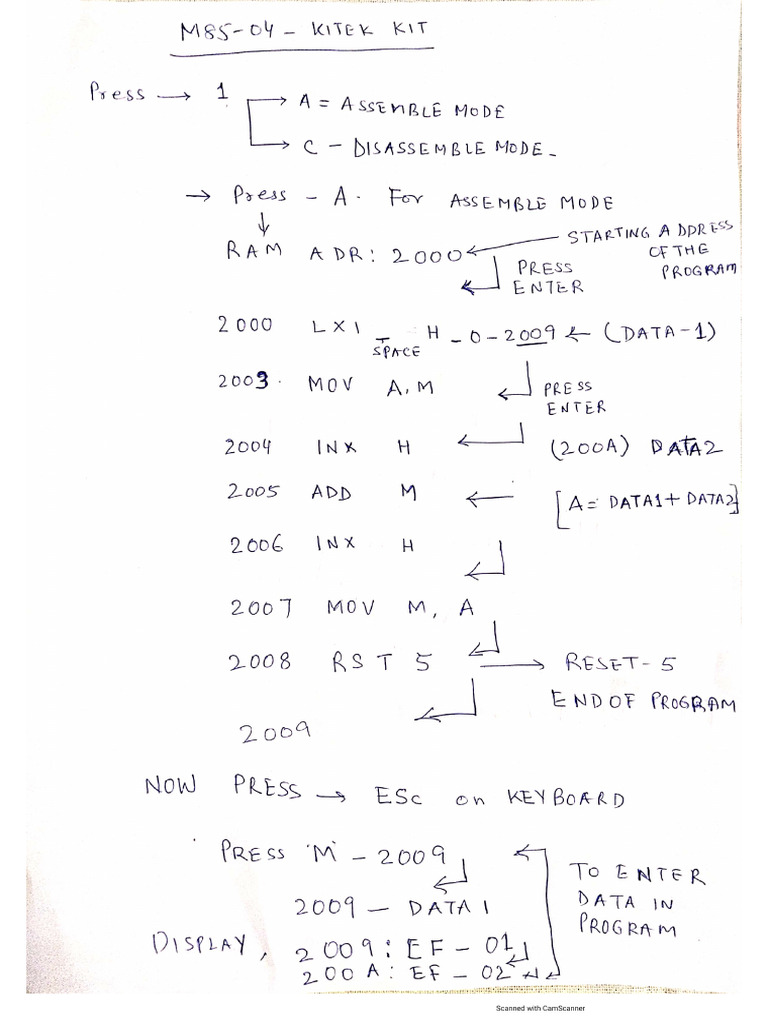 M85-04 - KITEK KIT
Press → 1 → A = ASSEMBLE MODE
→ C - DISASSEMBLE MODE -
→ Press - A. For ASSEMBLE MODE
↓
RAM ADR: 2000 ← STARTING ADDRESS OF THE PROGRAM
PRESS ENTER
2000 LXI _ H - 0 - 2009 ← (DATA-1)
SPACE
2003. MOV A, M ← PRESS ENTER
2004 INX H ← (200A) DATA2
2005 ADD M ← [A = DATA1 + DATA2]
2006 INX H
2007 MOV M, A
2008 RST 5 → RESET-5
END OF PROGRAM
2009
NOW PRESS → ESC on KEYBOARD
PRESS 'M' - 2009
2009 - DATA 1
TO ENTER DATA IN PROGRAM
DISPLAY, 2009: EF - 01
200A: EF - 02
Scanned with CamScanner